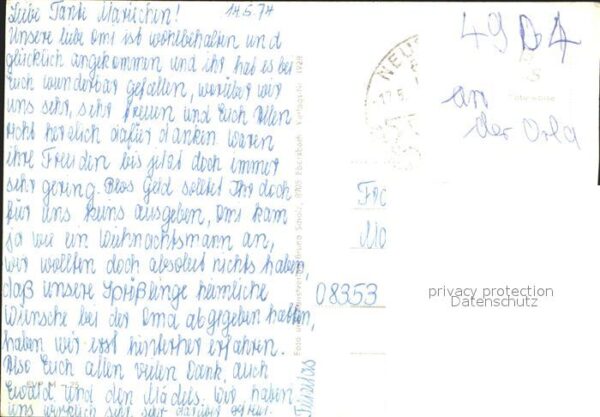 Liebe Tante Mariechen! 14.5.77
Unsere liebe Omi ist wohlbehalten und
glücklich angekommen und ihr hat es bei
Euch wunderbar gefallen, worüber wir
uns sehr, sehr freuen und Euch Allen
recht herzlich dafür danken. Waren
ihre Freuden bis jetzt doch immer
sehr gering. Blos Geld solltet Ihr doch
für uns keins ausgeben, Omi kam
ja wie ein Weihnachtsmann an,
wir wollten doch absolut nichts haben,
daß unsere Sprößlinge heimliche
Wünsche bei der Oma abgegeben hatten,
haben wir erst hinterher erfahren.
Also Euch allen vielen Dank, auch
Ewald und den Mädels. Wir haben
uns wirklich sehr, sehr darüber gefreut.
NEU
17.5
49
an
der Orla
Fr
Mo
08353
privacy protection
Datenschutz